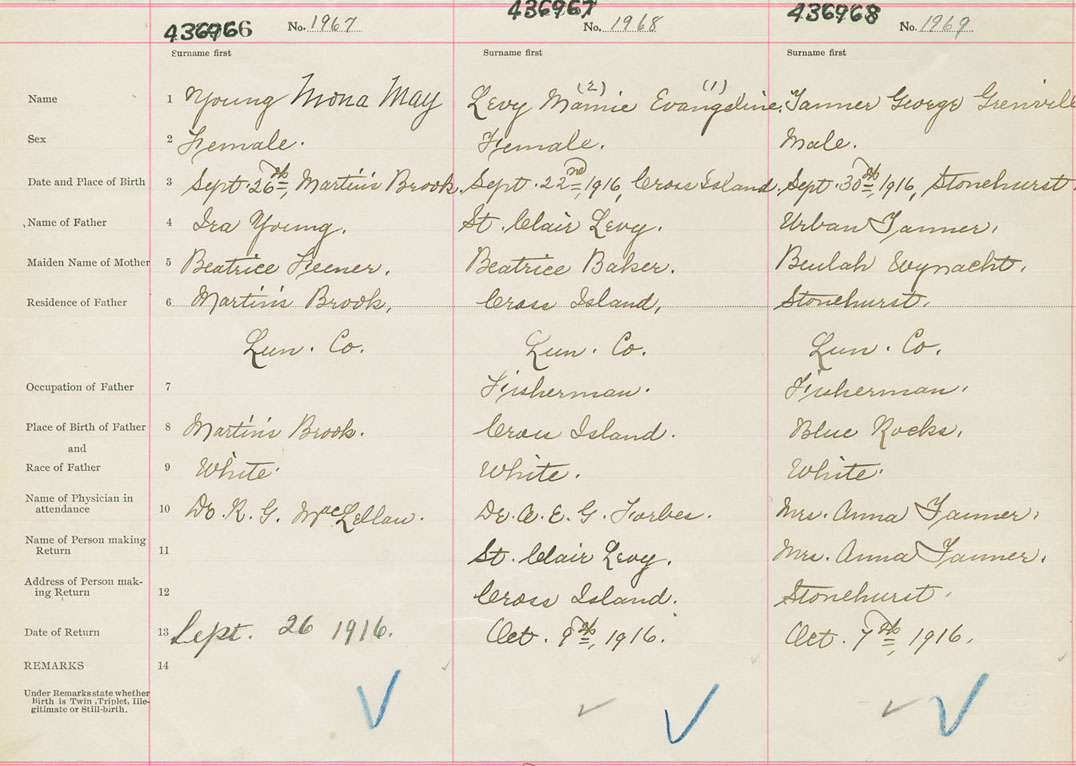 436966 No. 1967 436967 No. 1968 436968 No. 1969
Surname first Surname first Surname first
(2) (1)
Name 1 Young Mona May Levy Mamie Evangeline. Tanner George Grenvill
Sex 2 Female. Female. Male.
Date and Place of Birth 3 Sept. 26th, Martin's Brook. Sept. 22nd, 1916, Cross Island. Sept. 30th, 1916, Stonehurst.
Name of Father 4 Ira Young. St. Clair Levy. Urban Tanner.
Maiden Name of Mother 5 Beatrice Feener. Beatrice Baker. Beulah Wynacht.
Residence of Father 6 Martin's Brook, Cross Island, Stonehurst.
Lun. Co. Lun. Co. Lun. Co.
Occupation of Father 7 Fisherman. Fisherman.
Place of Birth of Father 8 Martin's Brook. Cross Island. Blue Rocks.
and
Race of Father 9 White. White. White.
Name of Physician in attendance 10 Dr. K. G. MacLellan. Dr. A. E. G. Forbes. Mrs. Anna Tanner.
Name of Person making Return 11 St. Clair Levy. Mrs. Anna Tanner.
Address of Person mak-
ing Return 12 Cross Island. Stonehurst.
Date of Return 13 Sept. 26 1916. Oct. 9th, 1916. Oct. 7th, 1916.
REMARKS 14
Under Remarks state whether
Birth is Twin, Triplet, Ille-
gitimate or Still-birth.